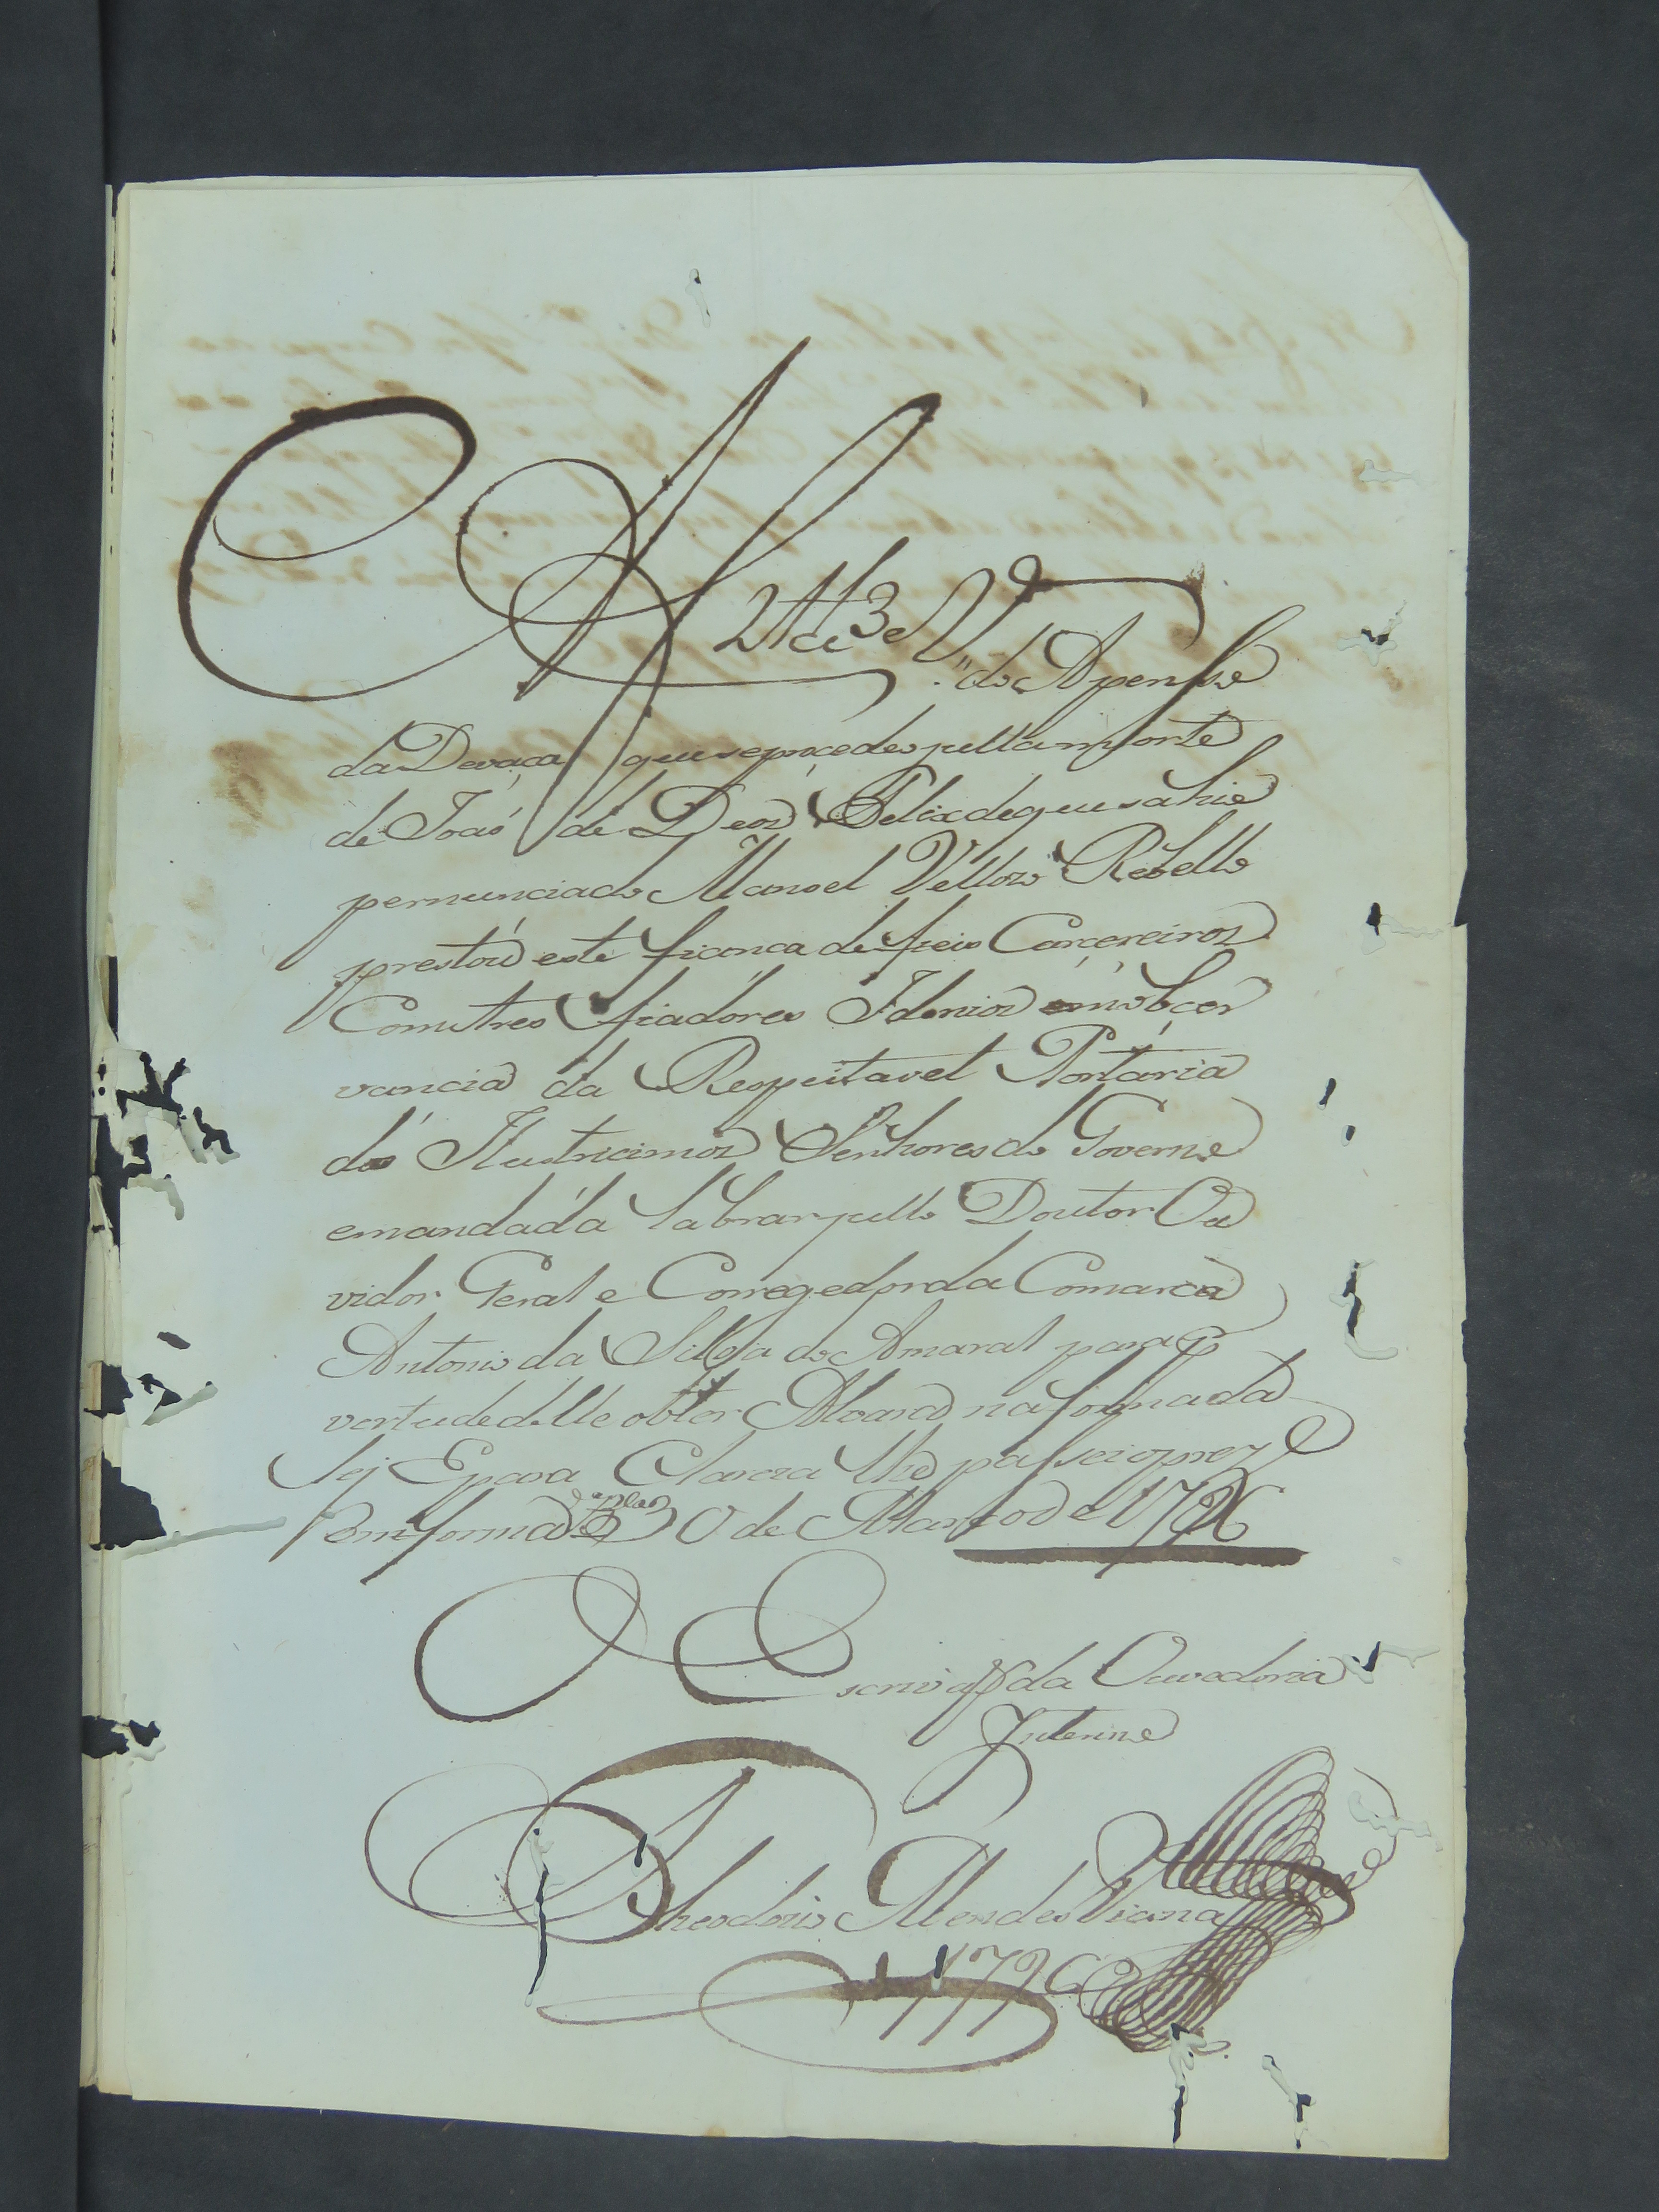 A 2 the 3 e V do Apense
da Devaça que se procedeo pella morte
de Joaõ de Deos Felix de que sahio
pernunciado Manoel Vellozo Rebello
prestou este fiança de fieis Carçereiros
Com tres fiadores Idonios em obcer
vancia da Respeitavel Portaria
dos Ilustricimos Senhores do Governo
emandada labrar pello Doutor Ou
vidor Geral e Corregedor da Comarca
Antonio da Silva do Amaral para p
vertude delle obter Alvará na forma da
Ley E para Clareza lhe passei o prez.e
em forma 30 de Março de 1796
Escrivaõ da Ouvedoria
Interino
Theodozio Mendes Viana
1796